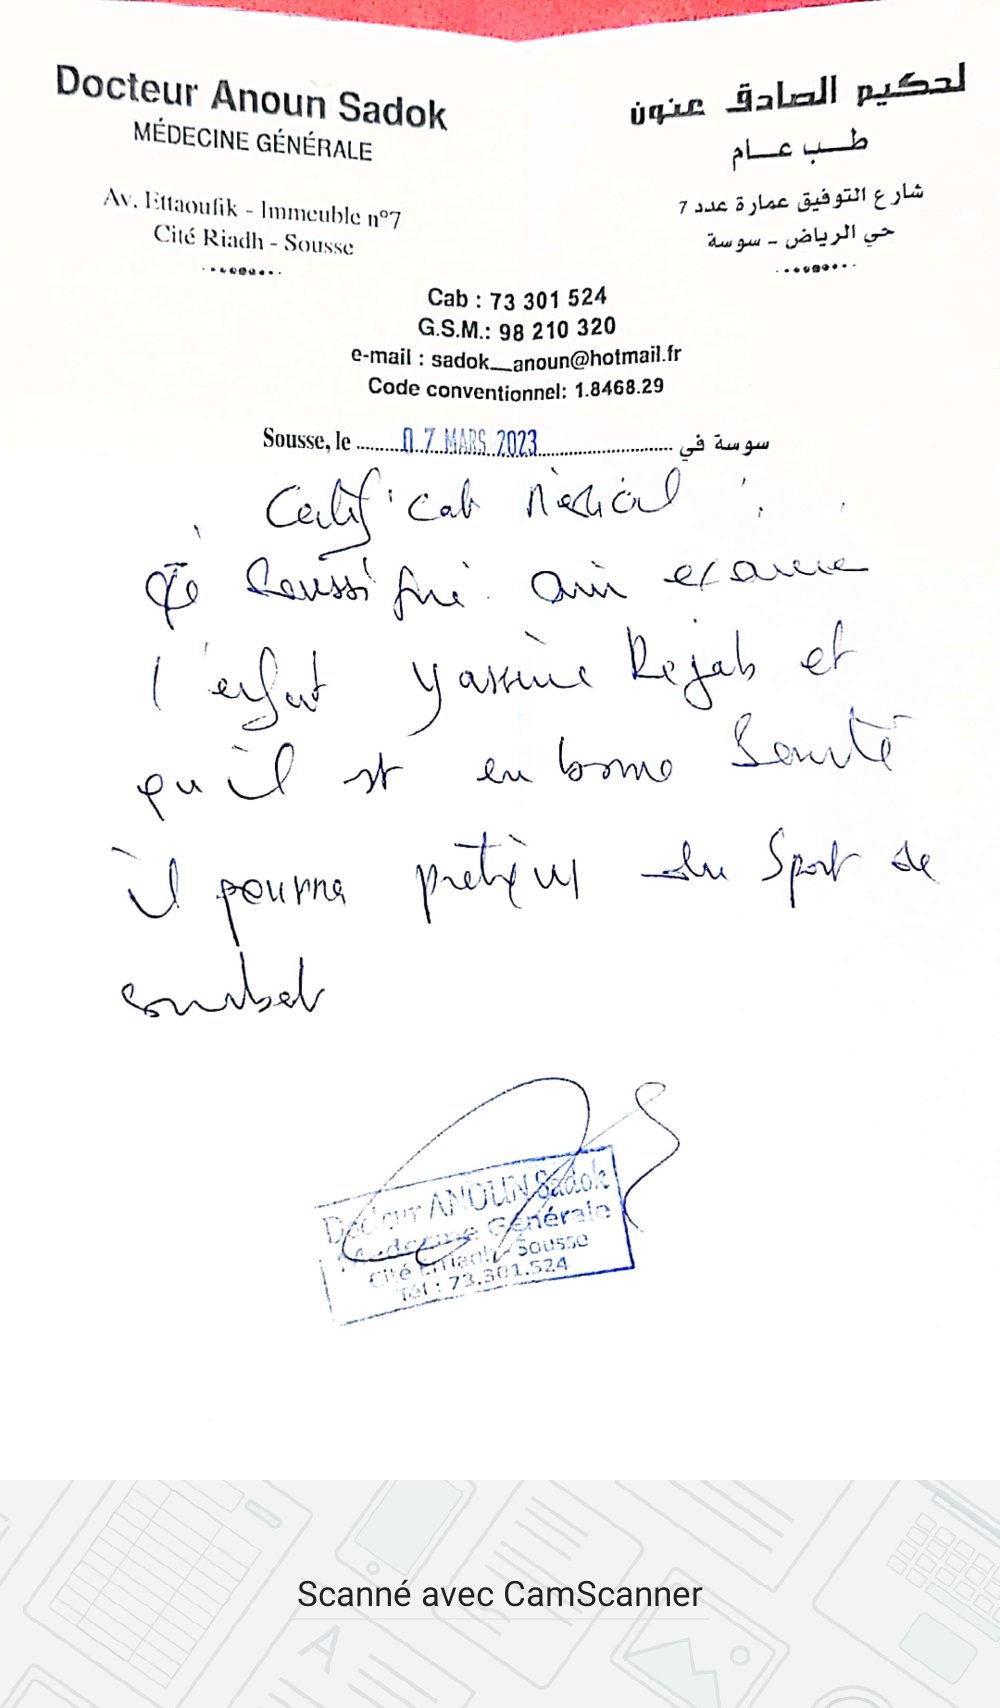 Docteur Anoun Sadok
MÉDECINE GÉNÉRALE
Av. Ettaoufik - Immeuble n°7
Cité Riadh - Sousse
لحكيم الصادق عنون
طب عام
شارع التوفيق عمارة عدد 7
حي الرياض - سوسة
Cab : 73 301 524
G.S.M.: 98 210 320
e-mail : sadok_anoun@hotmail.fr
Code conventionnel: 1.8468.29
Sousse, le 07 MARS 2023 سوسة في
Certificat Médical :
Je Soussigné avoir examiné
l'enfant Yassine Rejab et
qu'il est en bonne Santé
il pourra pratiquer du Sport de
combat
Docteur ANOUN Sadok
Médecine Générale
Cité Erriadh - Sousse
Tél : 73.301.524
Scanné avec CamScanner